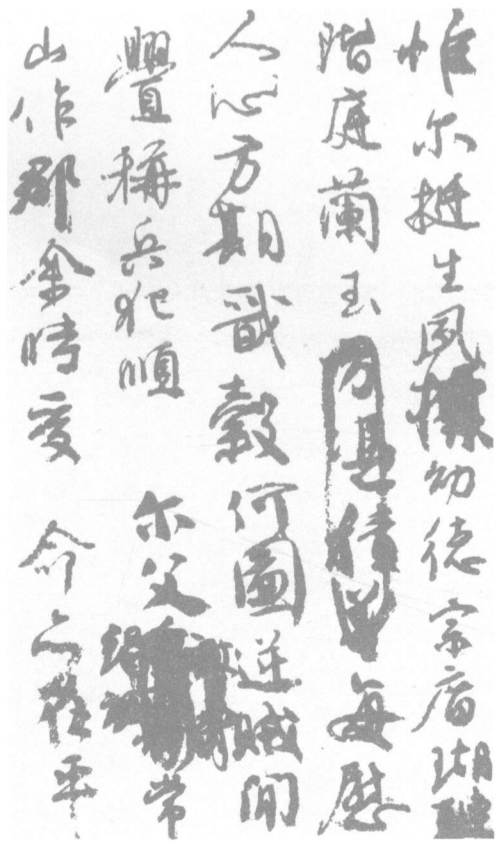 惟尔挺生夙標幼德宗廟瑚璉
階庭蘭玉方憑積善每慰
人心方期戩穀何圖逆賊閒
釁稱兵犯順尔父常
山作郡余時受命亦在平